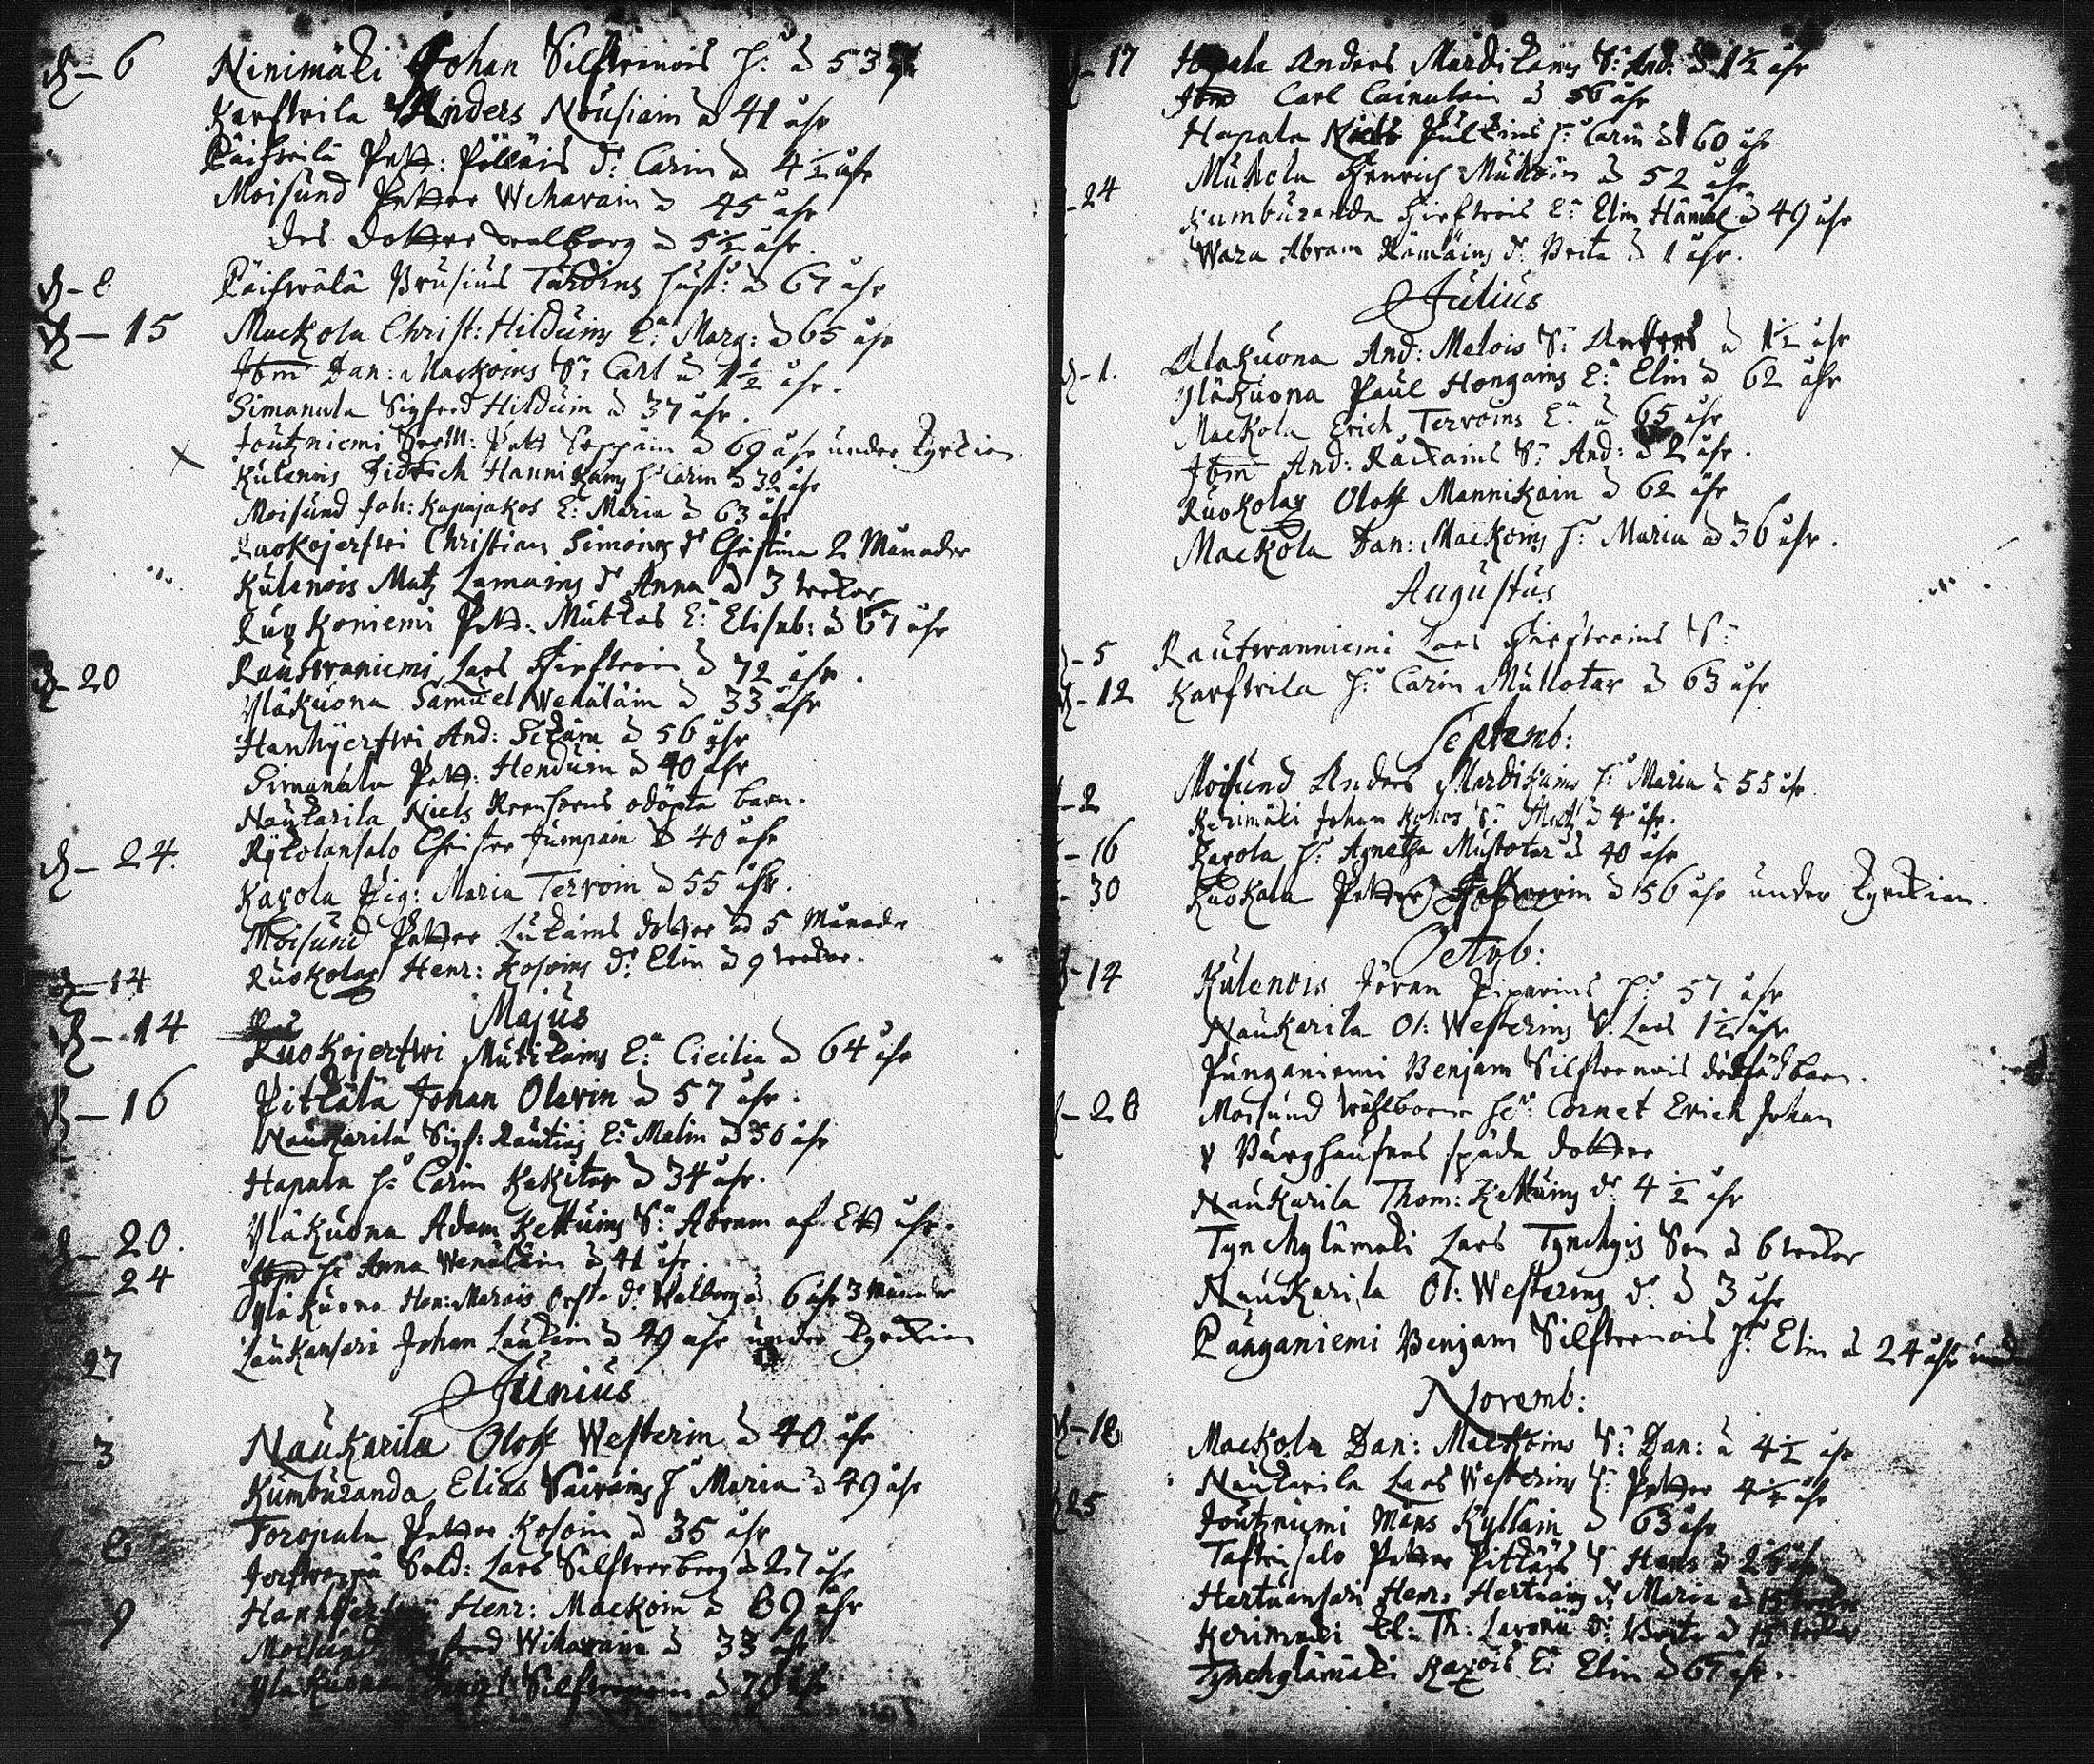 d - 6 Ninimäki Johan Silfwenois H: å 53 åhr
Karfwila Anders Nousiain å 41 åhr
Päiswilä Pett: Pölläis dr Carin å 4½ åhr
Moisund Petter Wihavain å 45 åhr
des dotter Walborg å 5½ åhr.
d - 8 Päiswälä Brusius Tårdins hust: å 67 åhr
d - 15 Mackola Christ: Hilduins E: Marg: å 65 åhr
Ibm Dan: Mackoins S: Carl å 1½ åhr.
Simanala Sigfred Hilduin å 37 åhr.
Joutzniemi Pett Seppäin å 69 åhr under kyrkian
Kulenois Hannikains H: Carin å 32 åhr
Moisund Joh: Kapajakos E: Maria å 63 åhr
Ruokojerfwi Christian Simons dr Christina 2 Månader
Kulenois Matz Lamains dr Anna å 3 weckor
Ruokoniemi Pett: Mutkas E: Elisab: å 67 åhr
d - 20 Rautwaniemi Lars Hirfwoin å 72 åhr.
Yläkuona Samuel Wenäläin å 33 åhr
Hanhijerfwi And: Sikäin å 56 åhr
Simanala Pett: Henduin å 40 åhr
Naukarila Niels odöpta barn.
d - 24. Rykolansalo Christer Jumpain å 40 åhr
Karola Pig: Maria Tervoin å 55 åhr.
Moisund Petter Lukains dotter å 5 Månader
Ruokolax Henr: Kosoins dr Elin å 9 weckor.
d - 14
Majus
d - 14 Ruokojerfwi Mutikains E: Cicilia å 64 åhr
d - 16 Pitkälä Johan Olavin å 57 åhr.
Naukarila Sigf: Rautias E: Malin å 50 åhr
Hapala H: Carin Kakitar å 34 åhr.
d - 20. Yläkuona Adam Kettuins S: Abram af Ett åhr.
- 24 Ibm H: Anna Wenäläin å 41 åhr.
Yläkuona Hen: Marais dr Walborg å 6 åhr 3 Månader
27 Laukansari Johan Laukain å 49 åhr under kyrkian
Junius
- 3 Naukarila Oloff Westerin å 40 åhr
Kumburanda Elias Sairains H: Maria å 49 åhr
Toropala Petter Kosoin å 35 åhr
- 8 Sold: Lars Silfwerberg å 27 åhr
- 9 Henr: Mackoin å 89 åhr
Moisund Wihavain å 33 åhr
Yläkuona å 70 åhr
d - 17 Hapala Anders Mardikains S: And: å 1½ åhr
Ibm Carl Cainulain å 56 åhr
Hapala Niels Pulkins H: Carin å 60 åhr
- 24 Muhola Henrich Muhoin å 52 åhr
Kumburanda Hirfwois E: Elin å 49 åhr
Wara Abram Rämäins dr Brita å 1 åhr.
Julius
d - 1. Alakuona And: Melois S: Anders å 1½ åhr
Yläkuona Paul Hongains E: Elin å 62 åhr
Mackola Erich Tervoins E: å 65 åhr
Ibm And: Räckains S: And: å 2 åhr.
Ruokolax Oloff Mannikain å 62 åhr
Mackola Dan: Mackoins H: Maria å 36 åhr.
Augustus
d - 5 Rautwanniemi Lars Hirfwoins S:
d - 12 Karfwila H: Carin Mullotar å 63 åhr
Septemb:
- 2 Moisund Anders Mardikains H: Maria å 55 åhr.
Kerimäki Johan Kohos S: Matz å 4 åhr.
- 16 Karola H: Agnetha Mustotar å 40 åhr
- 30 Ruokola Petter å 56 åhr under kyrckian.
Octob:
d - 14 Kulenois Jöran Piparins H: 57 åhr
Naukarila Ol: Westerins S: Lars 1½ åhr
Punganiemi Benjam Silfwenois dödfödt barn.
- 28 Moisund wählborne Hr: Cornet Erich Johan
v Burghausens späda dotter
Naukarila Thom: Kettuins dr 4½ åhr
Tynchylämäki Lars Tynchyis Son å 6 weckor
Naukarila Ol: Westerins dr å 3 åhr
Punganiemi Benjam Silfwenois H: Elin å 24 åhr under
Novemb:
d - 18 Mackola Dan: Mackoins S: Dan: å 4½ åhr
Naukarila Lars Westerins S: Petter 4¼ åhr
25 Joutzniemi Måns Kylläin å 63 åhr
Tafwisalo Petter Pitkäis S: Hans å
Hertuansari Henr: Hertuains dr Maria å 15 weckor
Kerimäki Th: Lavonii dr Brita å 15 weckor
Tynchylämäki Karois E: Elin å 67 åhr.